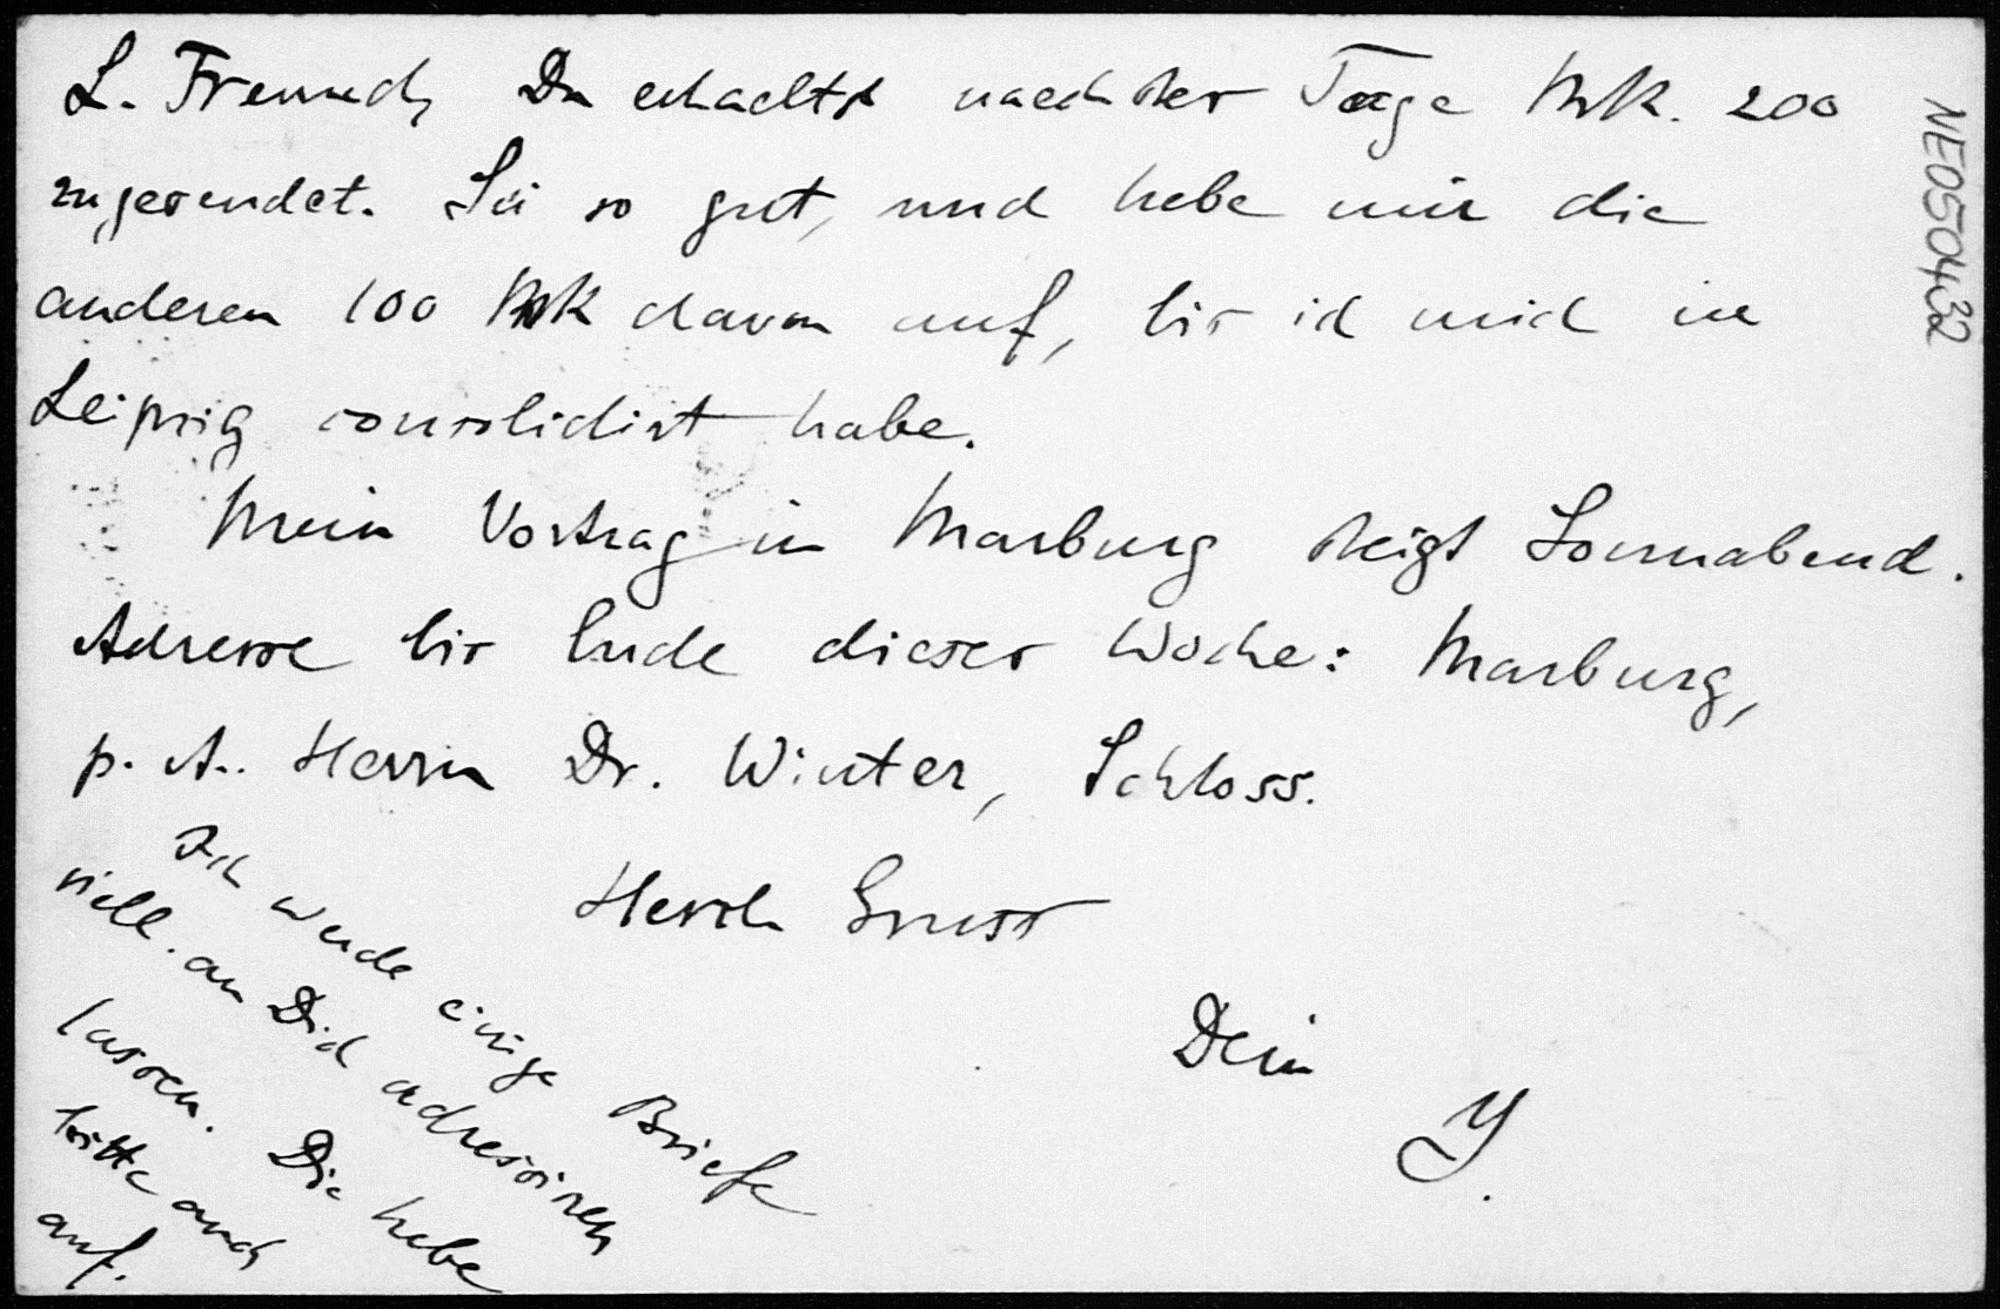 L. Freund, Du erhaeltst naechster Tage Mk. 200
zugesendet. Sei so gut, und hebe mir die
anderen 100 Mk davon auf, bis ich mich in
Leipzig consolidirt habe.
Mein Vortrag in Marburg steigt Sonnabend.
Adresse bis Ende dieser Woche: Marburg,
p. A. Herrn Dr. Winter, Schloss.
Herzl. Gruss
Dein
Y.
Ich werde einige Briefe
viell. an Dich adressiren
lassen. Die hebe
bitte auch
auf.
NE050432